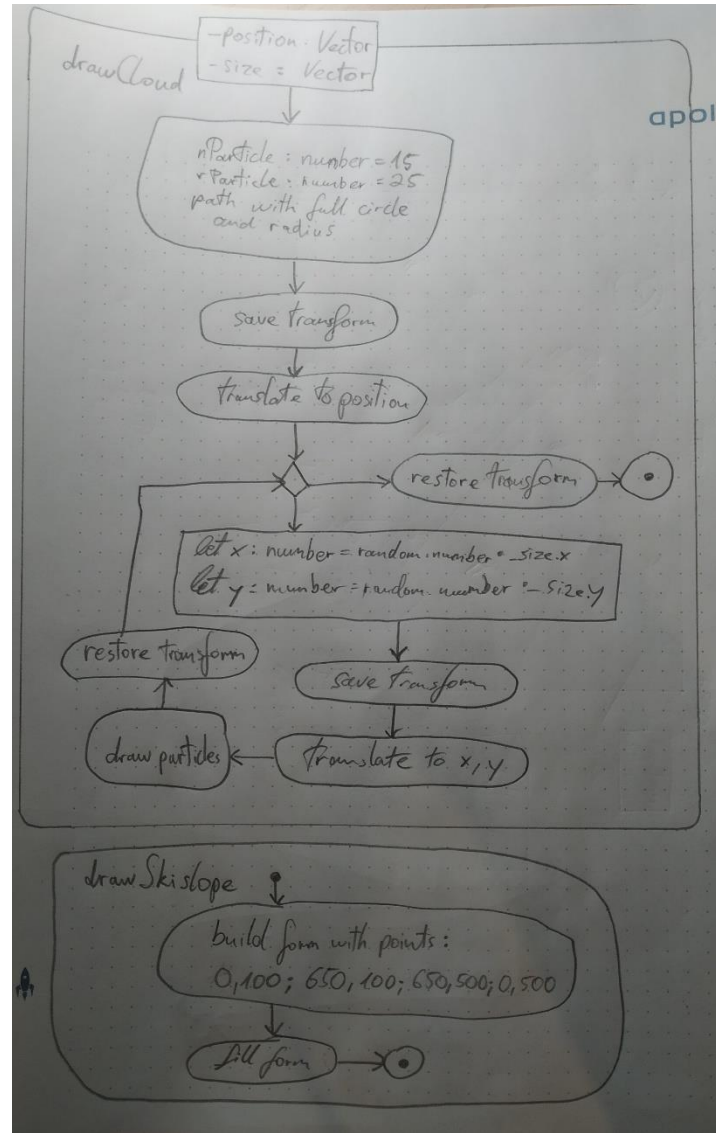 -position: Vector
-size = Vector
drawCloud
apol
nParticle : number = 15
rParticle : number = 25
path with full circle
and radius
save transform
translate to position
restore transform
let x : number = random.number * _size.x
let y : number = random.number * _size.y
restore transform
save transform
draw particles
translate to x, y
drawSkislope
build form with points :
0,100; 650,100; 650,500; 0,500
fill form